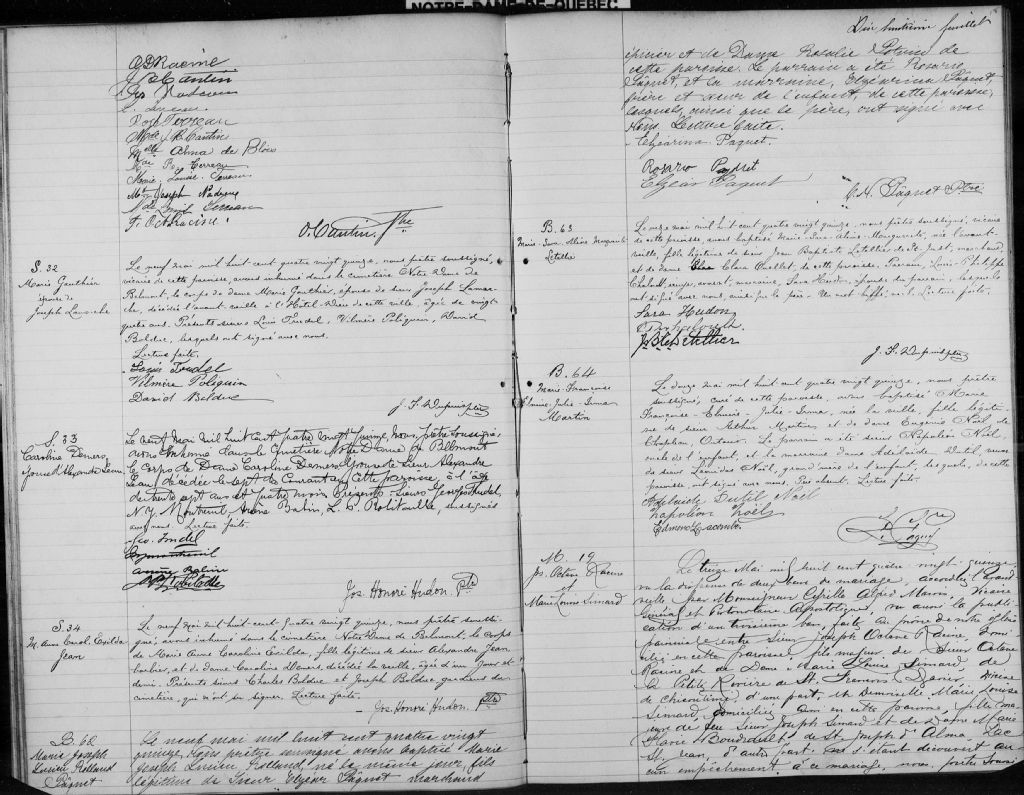 NOTRE-DAME-DE-QUEBEC
O D Racine
J. Cantin
Jos
Jos Terreau
Mde J. B. Cantin
Melle Alma de Blois
Marie Louise Terreau
Mde Joseph Nadeau
F. Oct. Racine
O. Cantin Ptre
S. 32
Marie Gauthier
épouse de
Joseph Lamarche
Le neuf mai mil huit cent quatre vingt quinze, nous prêtre soussigné,
vicaire de cette paroisse, avons inhumé dans le cimetière Notre Dame de
Belmont, le corps de dame Marie Gauthier, épouse de sieur Joseph Lamar-
che, décédée l'avant-veille à l'Hôtel-Dieu de cette ville, âgée de vingt
quatre ans. Présents sieurs Louis Trudel, Vilmère Poliquin, David
Bolduc, lesquels ont signé avec nous.
Lecture faite.
Louis Trudel
Vilmère Poliquin
David Bolduc
J. F. Dupuis ptre
S. 33
Caroline Demers
épouse d'Alexandre Jean
Le neuf Mai mil huit cent quatre vingt quinze, Nous, Prêtre soussigné,
avons inhumé dans le Cimetière Notre Dame de Belmont
le Corps de Dame Caroline Demers épouse de Sieur Alexandre
Jean, décédée le sept du Courant, de cette paroisse, à l'âge
de trente sept ans et quatre mois. Présents Sieurs Georges Trudel,
N. J. Montreuil, Robitaille, soussignés
avec nous. Lecture faite.
Geo. Trudel
Jos. Honoré Hudon. Ptre
S. 34
M. Anne Carol. Exilda
Jean
Le neuf mai mil huit cent quatre vingt quinze, nous prêtre soussi-
gné, avons inhumé dans le cimetière Notre Dame de Belmont, le corps
de Marie Anne Caroline Exilda, fille légitime de sieur Alexandre Jean
barbier, et de dame Caroline Demers, décédée la veille, âgée d'un jour et
demi. Présents sieurs Charles Bolduc et Joseph Bolduc, gardiens du
cimetière, qui n'ont su signer. Lecture faite.
Jos. Honoré Hudon. ptre
B. 62
Marie Joseph
Lucien Rolland
Pâquet
Le neuf mai mil huit cent quatre vingt
quinze, nous prêtre soussigné avons baptisé Marie
Joseph Lucien Rolland, né le même jour, fils
légitime de Sieur Elzéar Pâquet marchand
Dix huitième feuillet
épicier et de Dame Rosalie Potvin de
cette paroisse. Le parrain a été Rosario
Pâquet, et la marraine, Elzéarina Pâquet
frère et sœur de l'enfant, de cette paroisse,
lesquels, ainsi que le père, ont signé avec
Nous. Lecture faite.
Elzéarina Paquet.
Rosario Paquet
Elzéar Paquet
C. A. Pâquet Ptre
B. 63
Marie-Jeanne-Alice-Marguerite
Letellier
Le onze mai mil huit cent quatre vingt quinze, nous prêtre soussigné, vicaire
de cette paroisse, avons baptisé Marie Jeanne Alice Marguerite, née l'avant-
veille, fille légitime de sieur Jean Baptiste Letellier de St Just, marchand,
et de dame Clara Ouellet, de cette paroisse. Parrain, Louis-Philippe
marraine, Sara Hudon, épouse du parrain, lesquels
ont signé avec nous, ainsi que le père. Un mot biffé, nul. Lecture faite.
Sara Hudon
J. B. Letellier
J. F. Dupuis ptre
B. 64
Marie-Françoise
Elmire-Julie-Irma
Martin
Le douze mai mil huit cent quatre vingt quinze, nous prêtre
soussigné, curé de cette paroisse, avons baptisé Marie
Françoise-Elmire-Julie-Irma, née la veille, fille légiti-
me de sieur Arthur Martin et de dame Eugénie Noël, de
Le parrain a été sieur Napoléon Noël,
oncle de l'enfant, et la marraine dame Adélaïde Dutil, veuve
de sieur Léonidas Noël, grand'mère de l'enfant, lesquels, de cette
paroisse, ont signé avec nous. Père absent. Lecture faite.
Adélaïde Dutil Noël
Napoléon Noël
Edmond Lacombe
M. 19
Jos. Octave Racine
et
Marie Louise Simard
Le treize Mai mil huit cent quatre vingt quinze,
vu la dispense de deux bans de mariage, accordée l'avant
veille, par Monseigneur Cyrille Alfred Marois, Vicaire
Général et Protonotaire Apostolique, vu aussi la publi-
cation d'un troisième ban, faite au prône de notre église
paroissiale entre Sieur Joseph Octave Racine, domi-
cilié en cette paroisse, fils majeur de Sieur Octave
Racine et de Dame Marie Louise Simard, de
la Petite Rivière de St. François Xavier, diocèse
de Chicoutimi, d'une part, et Demoiselle Marie Louise
Simard, domiciliée aussi en cette paroisse, fille ma-
jeure de feu Sieur Joseph Simard et de Dame Marie
de St Joseph d'Alma, Lac
St. Jean, d'autre part, ne s'étant découvert au
cun empêchement à ce mariage, nous, prêtre soussi